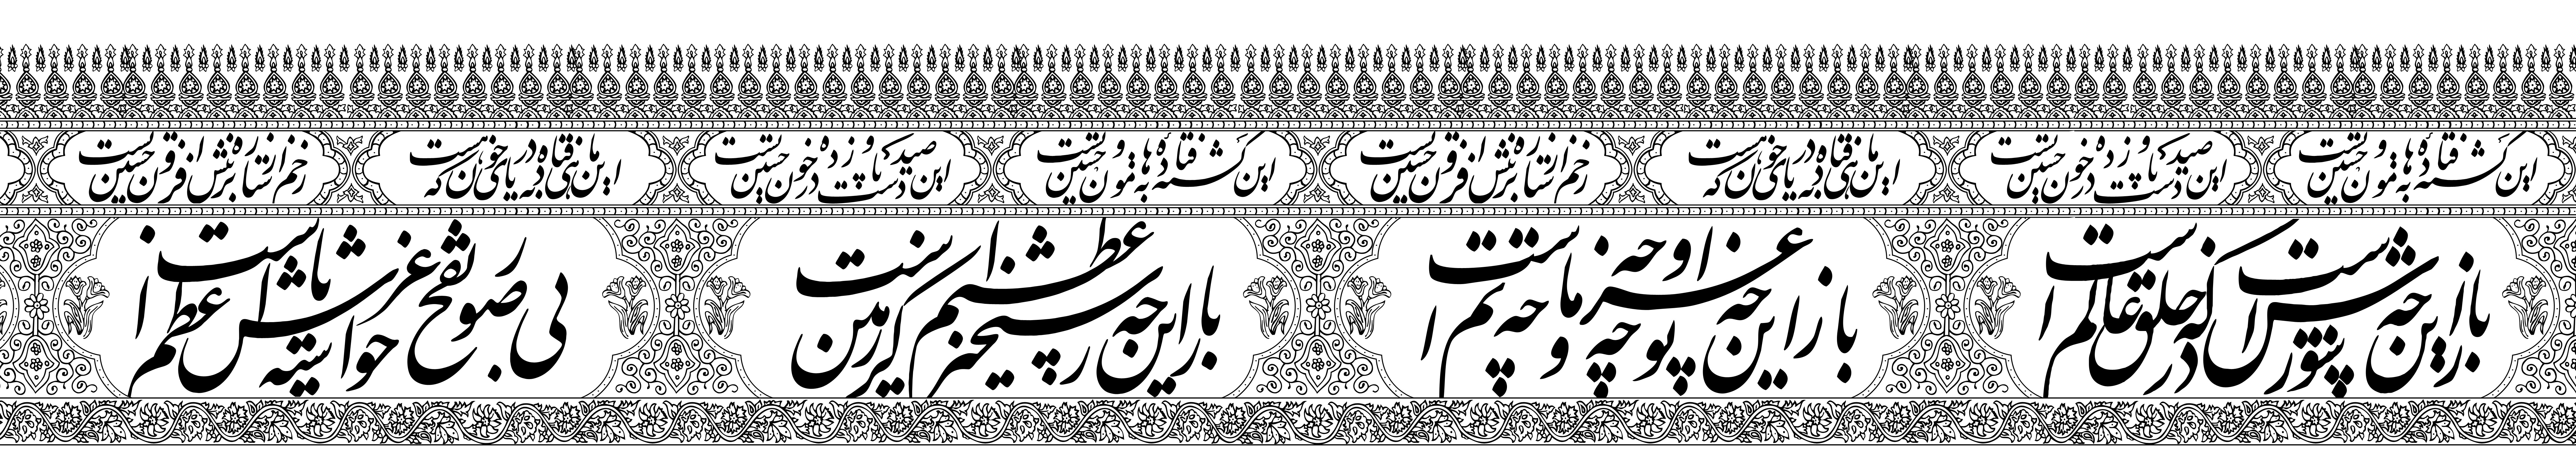 این کشته فتاده به هامون حسین توست
این صید دست و پا زده در خون حسین توست
این ماهی فتاده به دریای خون که هست
زخم از ستاره بر تنش افزون حسین توست
این کشته فتاده به هامون حسین توست
این صید دست و پا زده در خون حسین توست
این ماهی فتاده به دریای خون که هست
زخم از ستاره بر تنش افزون حسین توست
باز این چه شورش است که در خلق عالم است
باز این چه نوحه و چه عزا و چه ماتم است
باز این چه رستخیز عظیم است کز زمین
بی نفخ صور خواسته تا عرش اعظم است